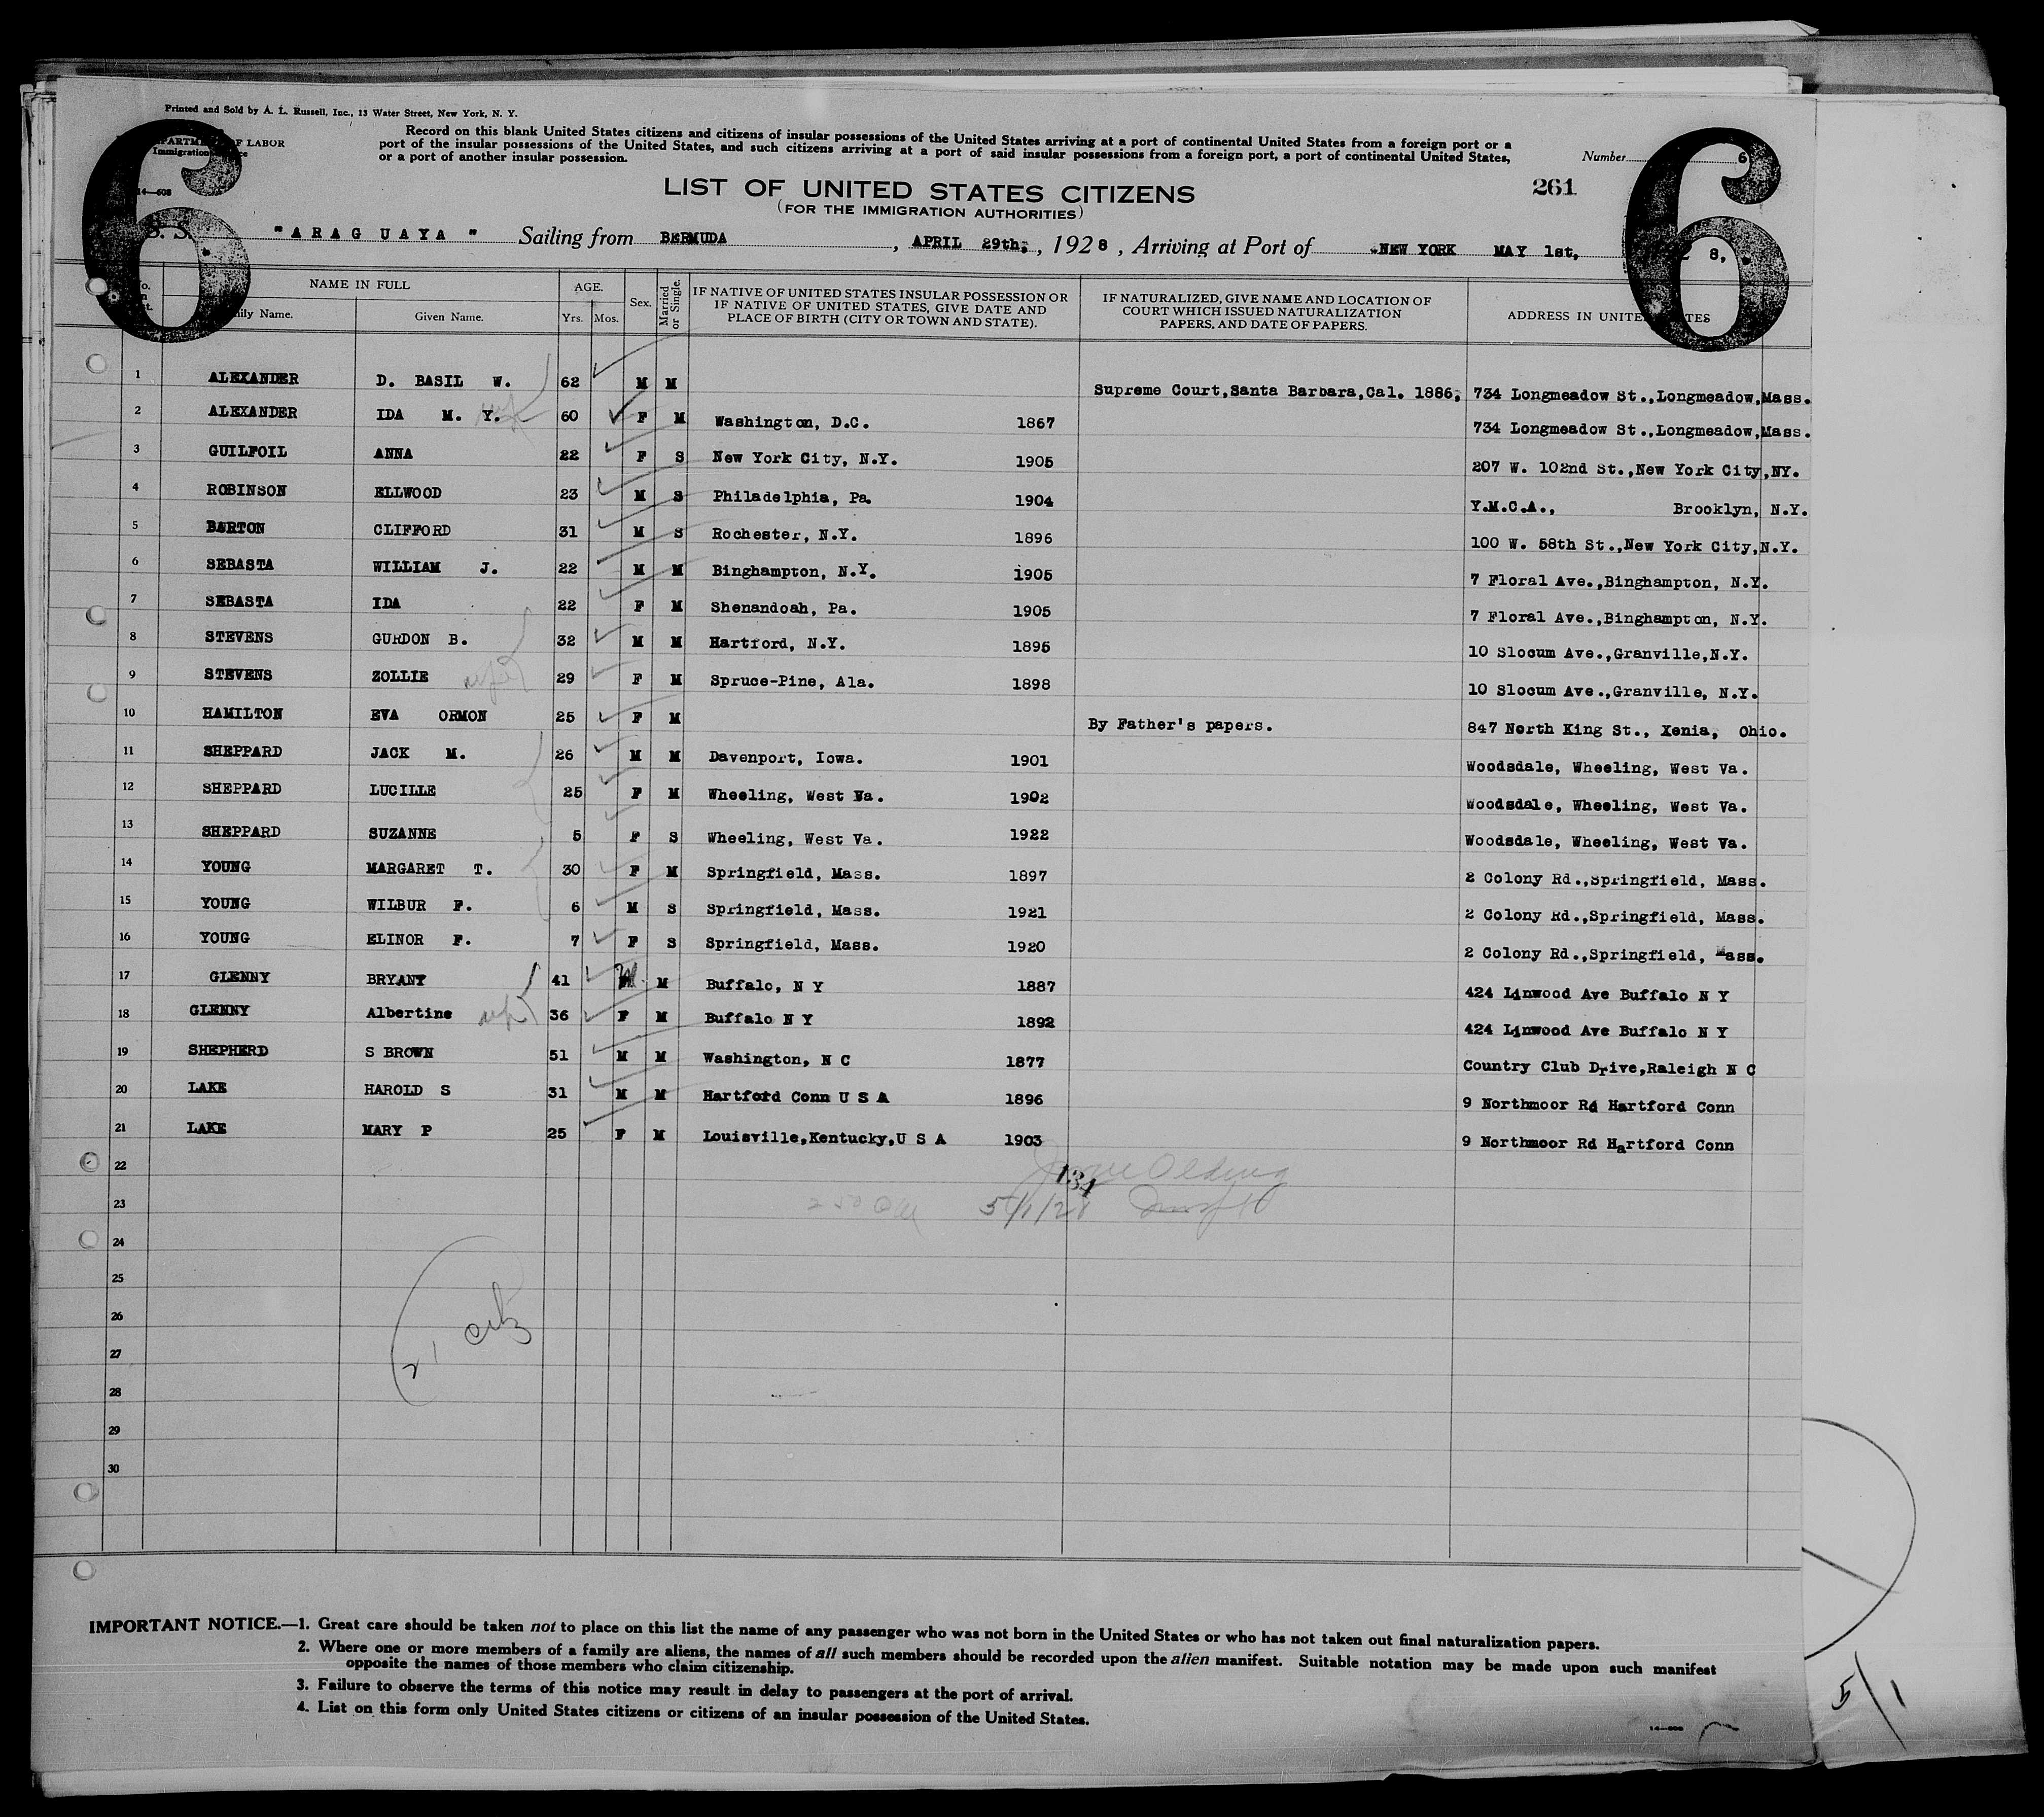 Printed and Sold by A. L. Russell, Inc., 13 Water Street, New York, N. Y.
6
6
OF LABOR
Immigration
14—608
Record on this blank United States citizens and citizens of insular possessions of the United States arriving at a port of continental United States from a foreign port or a
port of the insular possessions of the United States, and such citizens arriving at a port of said insular possessions from a foreign port, a port of continental United States,
or a port of another insular possession.
Number 6
LIST OF UNITED STATES CITIZENS
(FOR THE IMMIGRATION AUTHORITIES)
261
S. S. "ARAG UAYA" Sailing from BERMUDA, APRIL 29th;, 1928, Arriving at Port of NEW YORK MAY 1st, 8,
NAME IN FULL AGE. Sex. Married or Single. IF NATIVE OF UNITED STATES INSULAR POSSESSION OR IF NATIVE OF UNITED STATES, GIVE DATE AND PLACE OF BIRTH (CITY OR TOWN AND STATE). IF NATURALIZED, GIVE NAME AND LOCATION OF COURT WHICH ISSUED NATURALIZATION PAPERS, AND DATE OF PAPERS. ADDRESS IN
Name. Given Name. Yrs. Mos.
1 ALEXANDER D. BASIL W. 62 M M Supreme Court,Santa Barbara,Cal. 1886; 734 Longmeadow St.,Longmeadow,Mass.
2 ALEXANDER IDA M. Y. 60 F M Washington, D.C. 1867 734 Longmeadow St.,Longmeadow,Mass.
3 GUILFOIL ANNA 22 F S New York City, N.Y. 1905 207 W. 102nd St.,New York City,NY.
4 ROBINSON ELLWOOD 23 M S Philadelphia, Pa. 1904 Y.M.C.A., Brooklyn, N.Y.
5 BARTON CLIFFORD 31 M S Rochester, N.Y. 1896 100 W. 58th St.,New York City,N.Y.
6 SEBASTA WILLIAM J. 22 M M Binghampton, N.Y. 1905 7 Floral Ave.,Binghampton, N.Y.
7 SEBASTA IDA 22 F M Shenandoah, Pa. 1905 7 Floral Ave.,Binghampton, N.Y.
8 STEVENS GURDON B. 32 M M Hartford, N.Y. 1895 10 Slocum Ave.,Granville,N.Y.
9 STEVENS ZOLLIE 29 F M Spruce-Pine, Ala. 1898 10 Slocum Ave.,Granville, N.Y.
10 HAMILTON EVA ORMON 25 F M By Father's papers. 847 North King St., Xenia, Ohio.
11 SHEPPARD JACK M. 26 M M Davenport, Iowa. 1901 Woodsdale, Wheeling, West Va.
12 SHEPPARD LUCILLE 25 F M Wheeling, West Va. 1902 Woodsdale, Wheeling, West Va.
13 SHEPPARD SUZANNE 5 F S Wheeling, West Va. 1922 Woodsdale, Wheeling, West Va.
14 YOUNG MARGARET T. 30 F M Springfield, Mass. 1897 2 Colony Rd.,Springfield, Mass.
15 YOUNG WILBUR F. 6 M S Springfield, Mass. 1921 2 Colony Rd.,Springfield, Mass.
16 YOUNG ELINOR F. 7 F S Springfield, Mass. 1920 2 Colony Rd.,Springfield, Mass.
17 GLENNY BRYANT 41 M M Buffalo, N Y 1887 424 Linwood Ave Buffalo N Y
18 GLENNY Albertine wife 36 F M Buffalo N Y 1892 424 Linwood Ave Buffalo N Y
19 SHEPHERD S BROWN 51 M M Washington, N C 1877 Country Club Drive,Raleigh N C
20 LAKE HAROLD S 31 M M Hartford Conn U S A 1896 9 Northmoor Rd Hartford Conn
21 LAKE MARY P 25 F M Louisville,Kentucky,U S A 1903 9 Northmoor Rd Hartford Conn
22
134
23 5/1/28
24
25
26
27 21
28
29
30
IMPORTANT NOTICE.—1. Great care should be taken not to place on this list the name of any passenger who was not born in the United States or who has not taken out final naturalization papers.
2. Where one or more members of a family are aliens, the names of all such members should be recorded upon the alien manifest. Suitable notation may be made upon such manifest
opposite the names of those members who claim citizenship.
3. Failure to observe the terms of this notice may result in delay to passengers at the port of arrival.
4. List on this form only United States citizens or citizens of an insular possession of the United States.
14—608
5/1